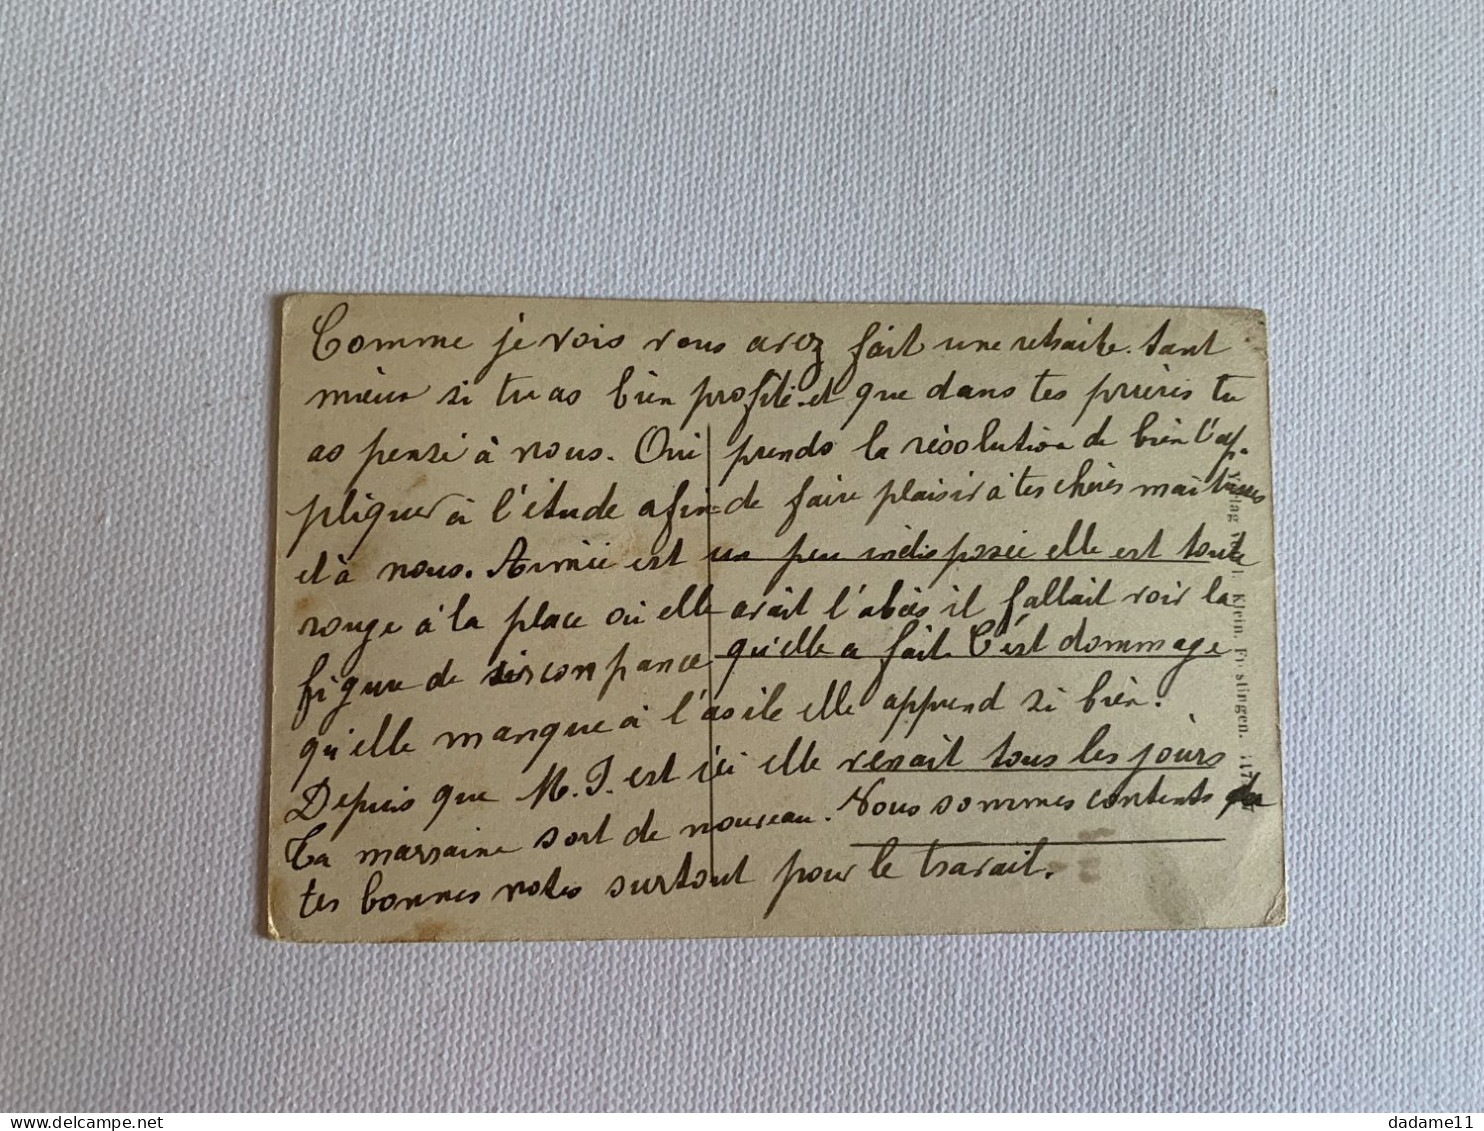 Comme je vois vous avez fait une retraite. tant
mieux si tu as bien profité et que dans tes prières tu
as pensé à nous. Oui prends la résolution de bien l'ap-
pliquer à l'étude afin de faire plaisir à tes chères maîtresses
et à nous. Aimée est un peu indisposée elle est toute
rouge à la place où elle avait l'abcès il fallait voir la
figure de circonpance qu'elle a fait. C'est dommage
qu'elle manque à l'asile elle apprend si bien.
Depuis que M. J. est ici elle venait tous les jours
Ta marraine sort de nouveau. Nous sommes contents de
tes bonnes notes surtout pour le travail.
Klein. Finstingen.
dadame11